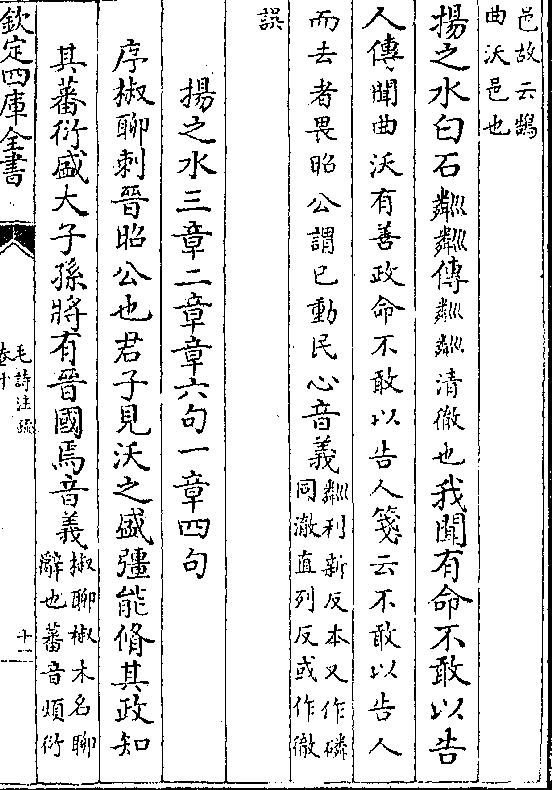 邑故云鵠
曲沃邑也
揚之水白石粼粼傳粼粼清徹也我聞有命不敢以告
人傳聞曲沃有善政命不敢以告人箋云不敢以告人
而去者畏昭公謂已動民心音義
粼利新反本又作磷
同澈直列反或作徹
誤
揚之水三章二章章六句一章四句
序椒聊刺晉昭公也君子見沃之盛彊能脩其政知
其蕃衍盛大子孫將有晉國焉音義
椒聊椒木名聊
辭也蕃音煩衍
欽定四庫全書
毛詩注疏
卷十
十一